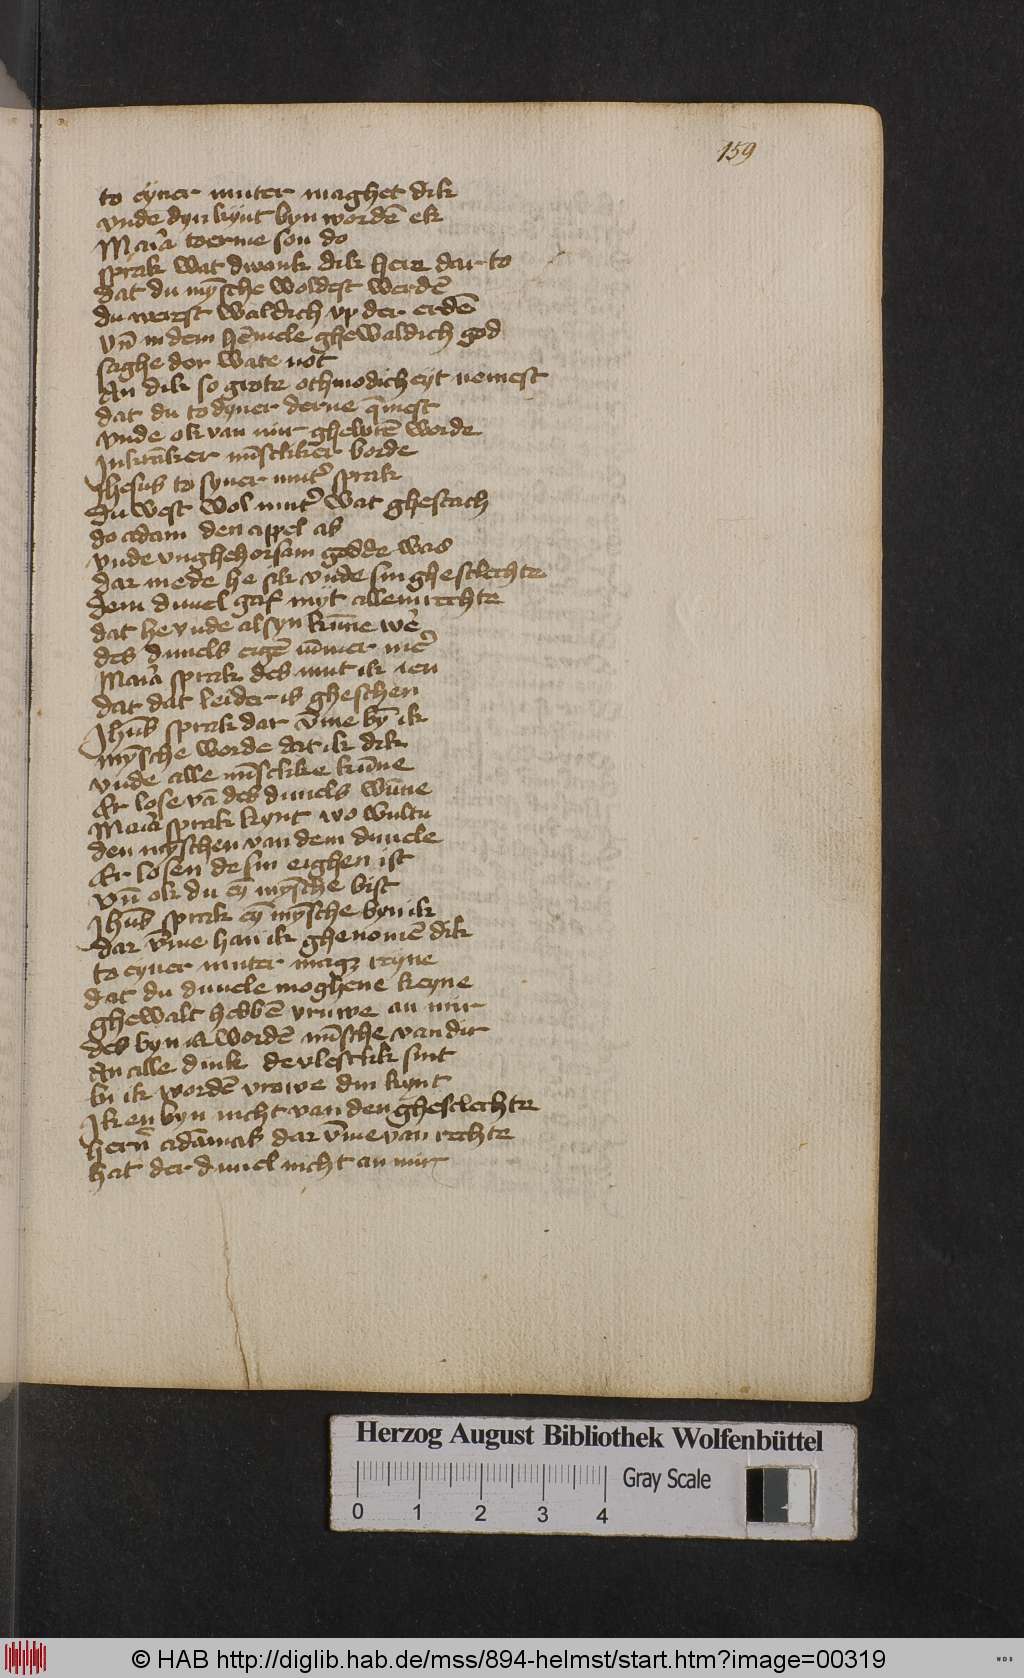 159
to eyner muter maghet dik
vnde dyn kynt byn wordē ek
Maria to erme son do
sprak wat dwonk dik here dar to
dat du mȳsche woldest werdē
du werest waldich vp der erdē
vn̄ in dem hēmele ghewaldich god
saghe dor wate not
An dik so grote othmodicheyt nemest
dat du to dyner derne q̄mest
vnde ok van mir ghebórē worde
In krāker mīsckliker borde
Jhesus to syner mut' sprak
du west wol mut' wat ghescach
do adam den appel as
vnde vnghehorsam godde was
dar mede he sik vnde sin ghesclechte
dem duuel gaf myt allem rechte
dat he vnde al syn kūne we'
des duuels eigē ūmer me'
Maria sprak des mut ik ien
dat dat leider is gheschen
Jhūs sprak dar v̄me bȳ ik
mȳsche worde dat ik dik
vnde alle mīscklike kūne
Er lose vā des duuels wūne
Maria sprak kynt wo wultu
den mȳschen van dem duuele
Er losen de sin eighen ist
vn̄ ok du eȳ mȳsche bist
Jhūs sprak eȳ mȳsche byn ik
dar v̄me han ik ghenomē dik
to eyner muter magz reyne
dat du duuele moghene keyne
ghewalt hebbē vruwe an mir
des byn ik wordē mīsche van dir
An alle dink de vlesclik sint
bi ik wordē vrowe din kynt
Ik en byn nicht van den ghesclechte
hern̄ adāmas dar v̄me van rechte
hat der duuel nicht an mir
Herzog August Bibliothek Wolfenbüttel
Gray Scale
0 1 2 3 4
© HAB http://diglib.hab.de/mss/894-helmst/start.htm?image=00319
WDB